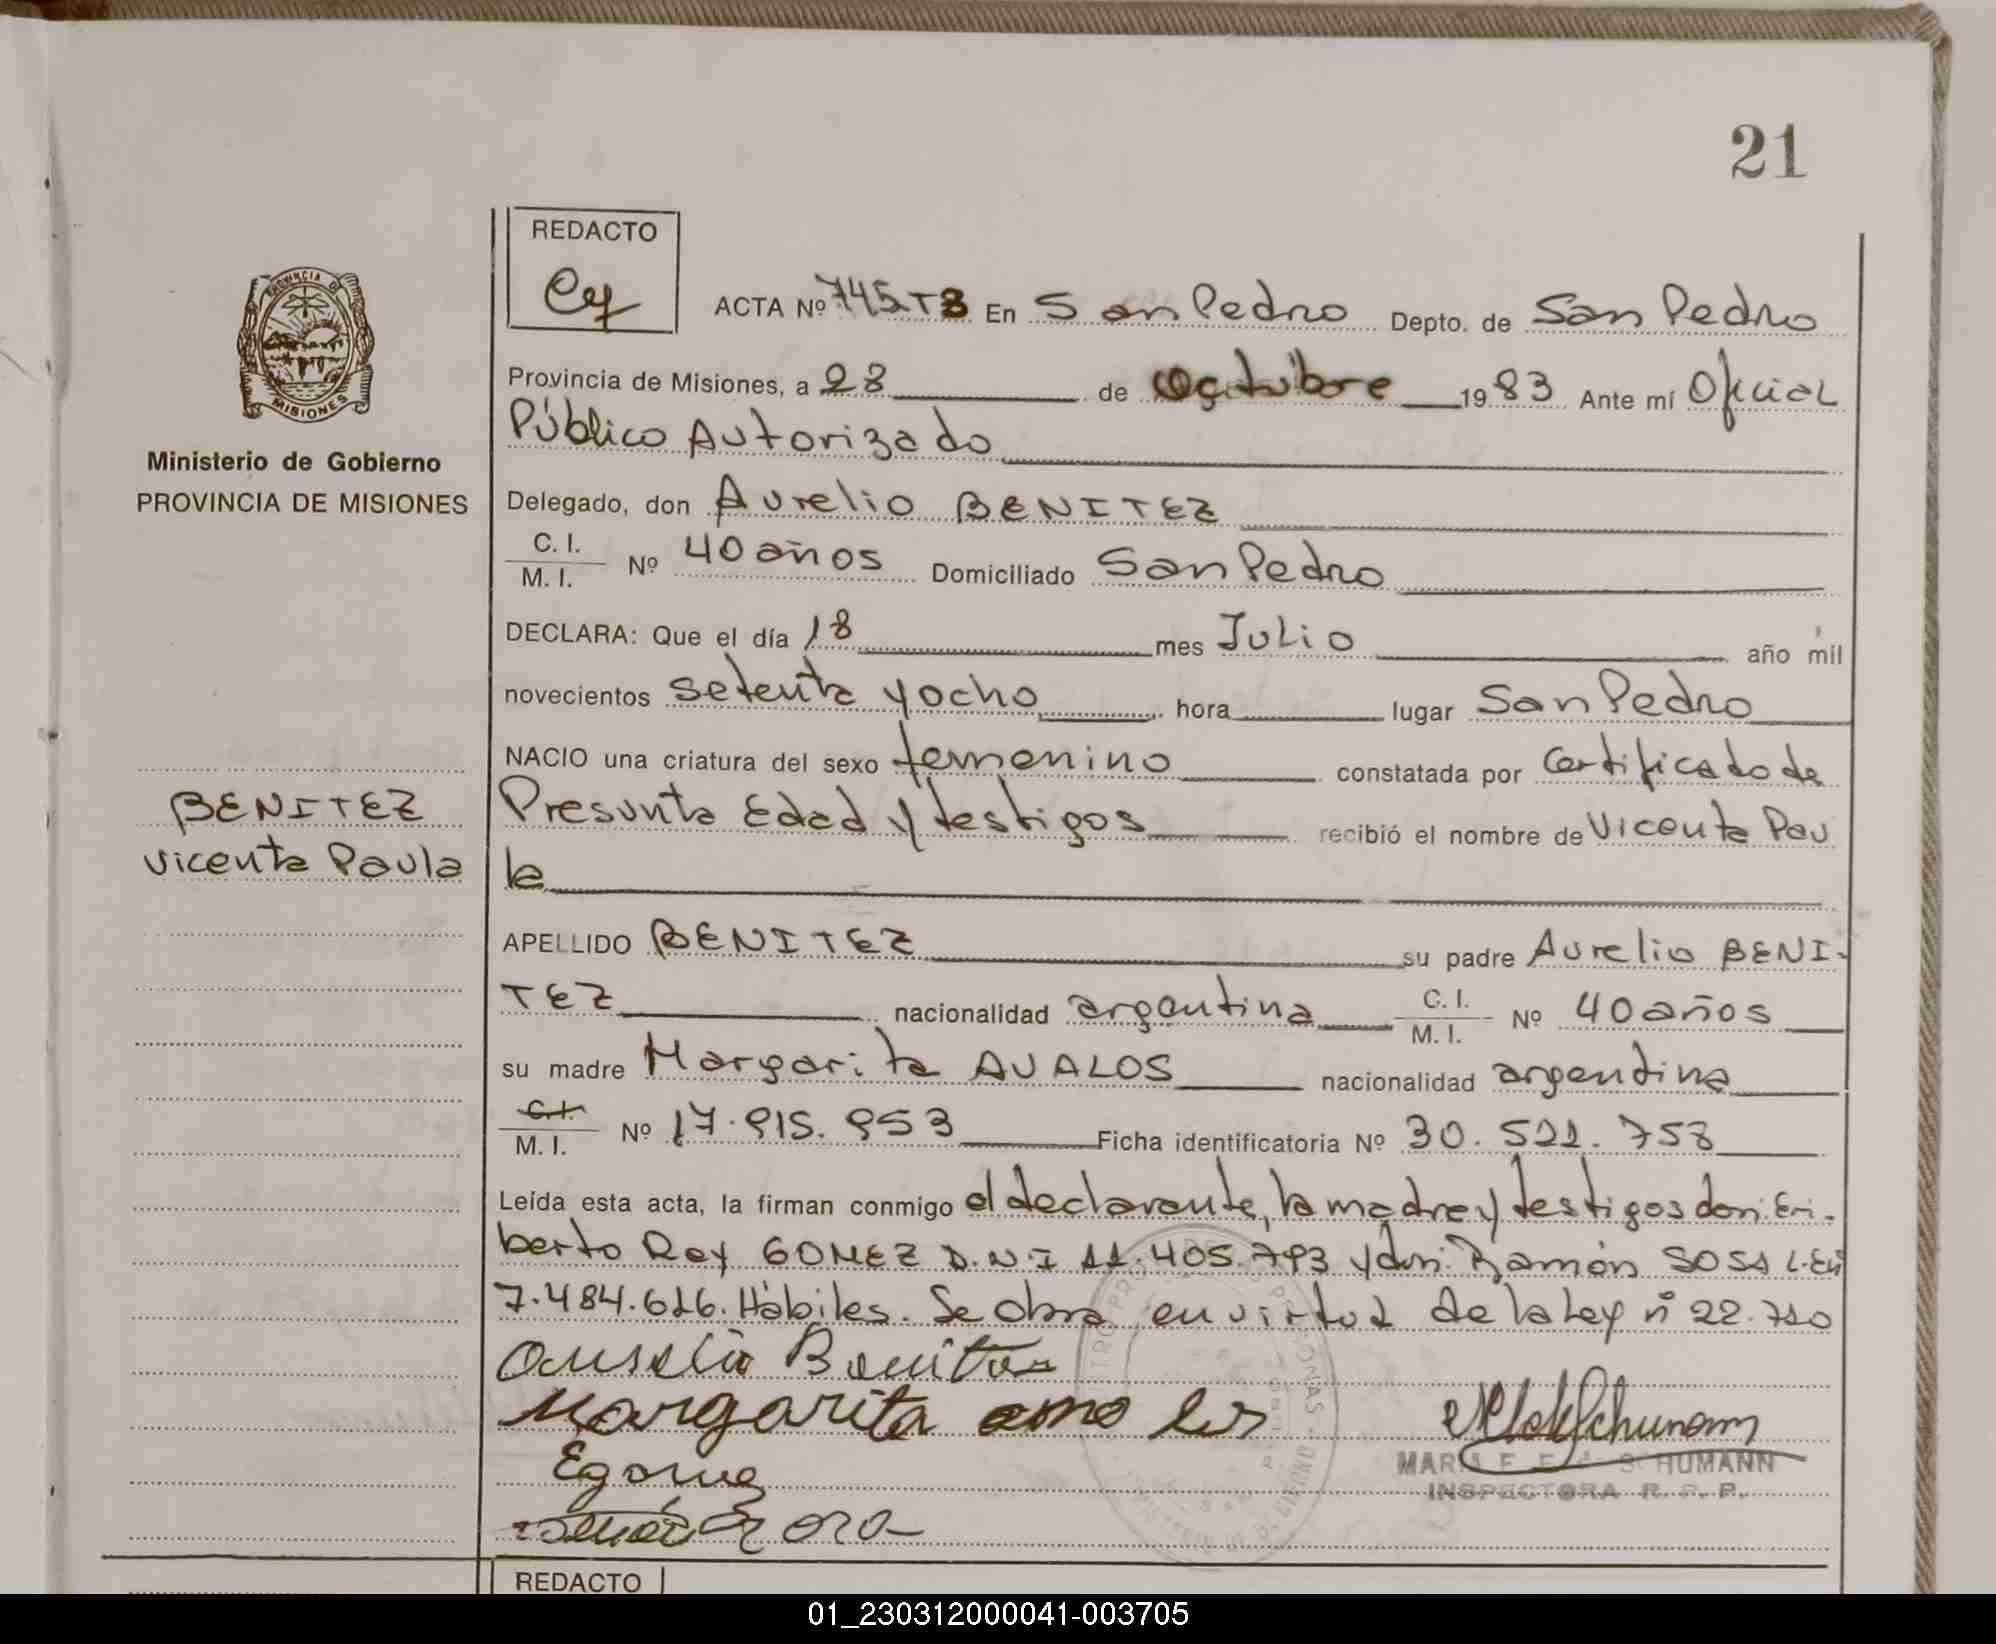 21
REDACTO
ACTA Nº 745T8 En San Pedro Depto. de San Pedro
Provincia de Misiones, a 28 de Octubre 1983 Ante mí Oficial
Público Autorizado
Ministerio de Gobierno
PROVINCIA DE MISIONES
Delegado, don Aurelio BENITEZ
C. I. / M. I. Nº 40 años Domiciliado San Pedro
DECLARA: Que el día 18 mes Julio año mil
novecientos setenta y ocho hora lugar San Pedro
NACIO una criatura del sexo femenino constatada por Certificado de
Presunta Edad y testigos recibió el nombre de Vicenta Pau
la
BENITEZ
Vicenta Paula
APELLIDO BENITEZ su padre Aurelio BENI-
TEZ nacionalidad argentina C. I. / M. I. Nº 40 años
su madre Margarita AVALOS nacionalidad argentina
C. I. / M. I. Nº 17.915.953 Ficha identificatoria Nº 30.521.758
Leída esta acta, la firman conmigo el declarante, la madre y testigos don: Eri-
berto Rey GOMEZ D.N.I 11.405.793 y don: Ramón SOSA L.E.
7.484.616. Hábiles. Se obra en virtud de la Ley nº 22.710
Aurelio Benitez
Margarita
Egomez
MARIA E. SCHUMANN
INSPECTORA R. P. P.
REDACTO
01_230312000041-003705